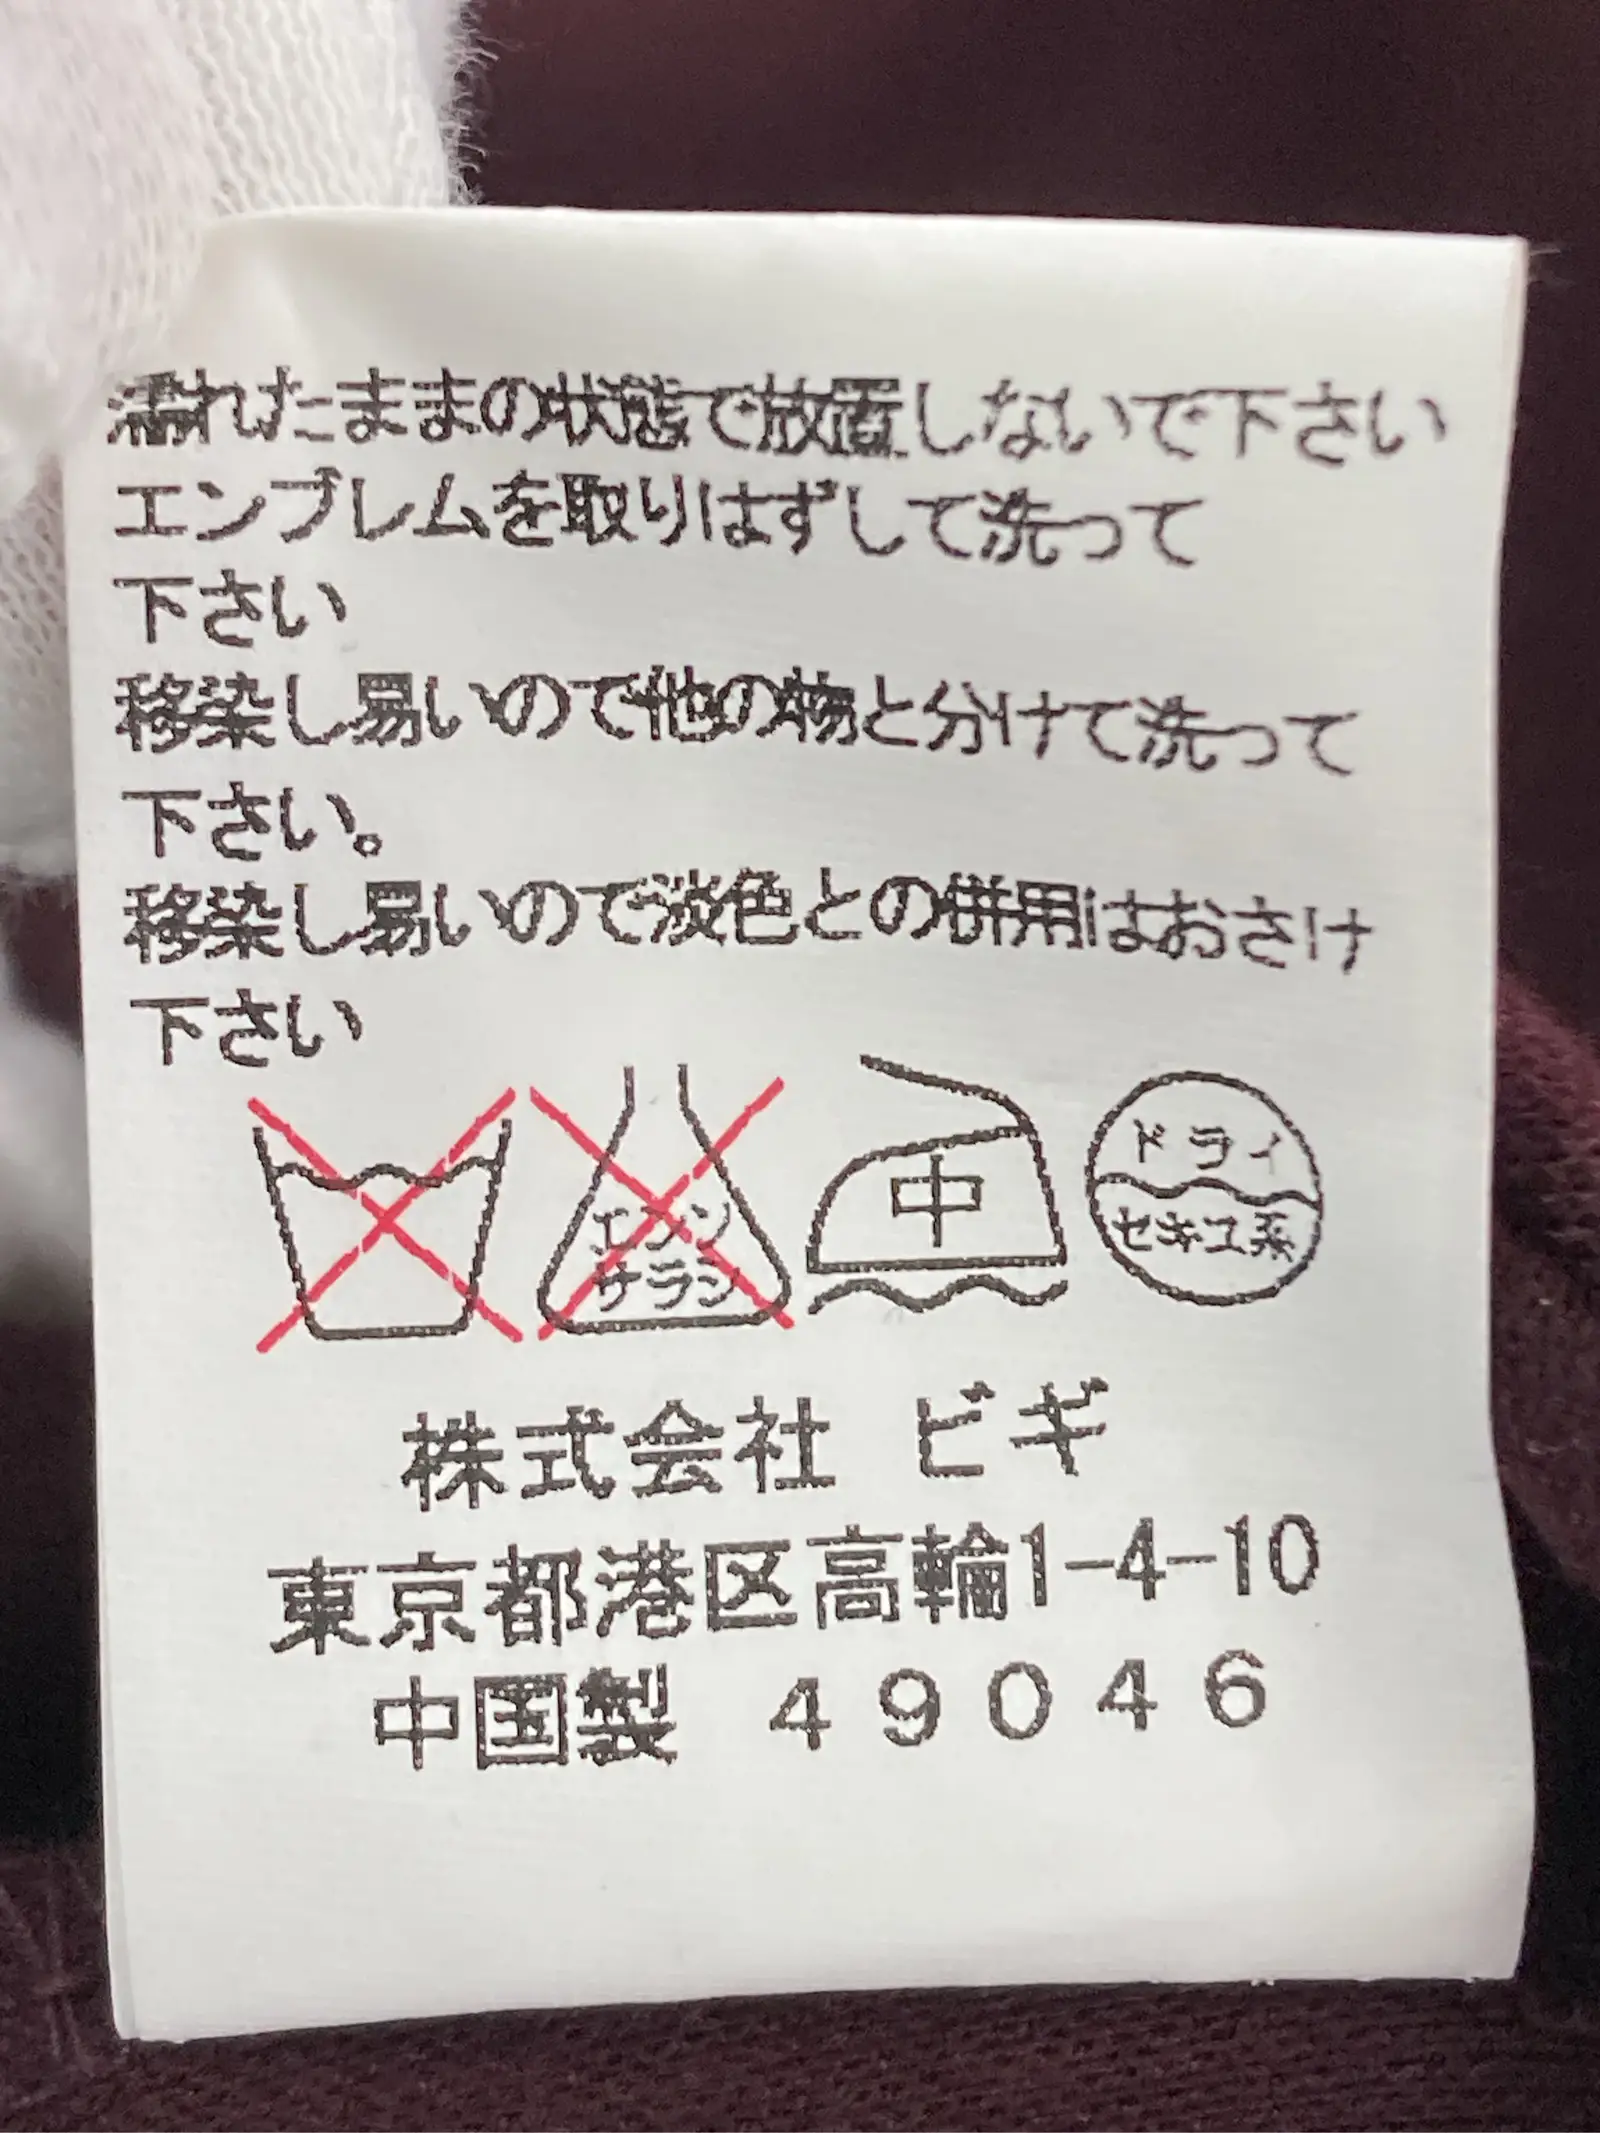 濡れたままの状態で放置しないで下さい
エンブレムを取りはずして洗って
下さい
移染し易いので他の物と分けて洗って
下さい。
移染し易いので淡色との併用はおさけ
下さい
エンソ
サラシ
中
ドライ
セキユ系
株式会社 ビギ
東京都港区高輪1-4-10
中国製 49046